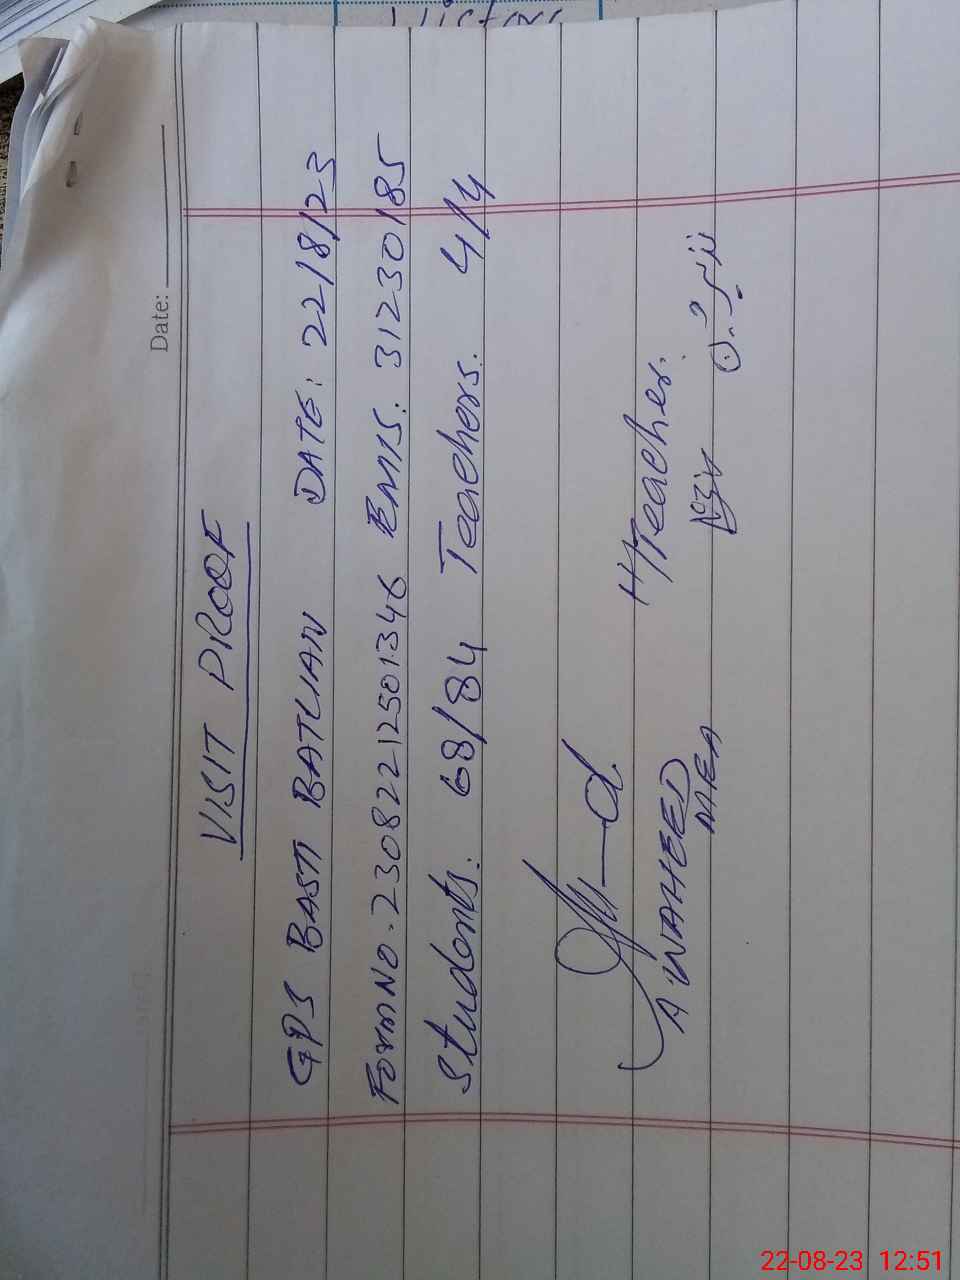 Date:
VISIT PROOF
GPS BASTI BATWAN DATE: 22/8/23
Form No. 23082212501346 EMIS. 31230185
Students. 68/84 Teachers. 4/4
H/Teacher.
A WAHEED
MEA
22-08-23 12:51